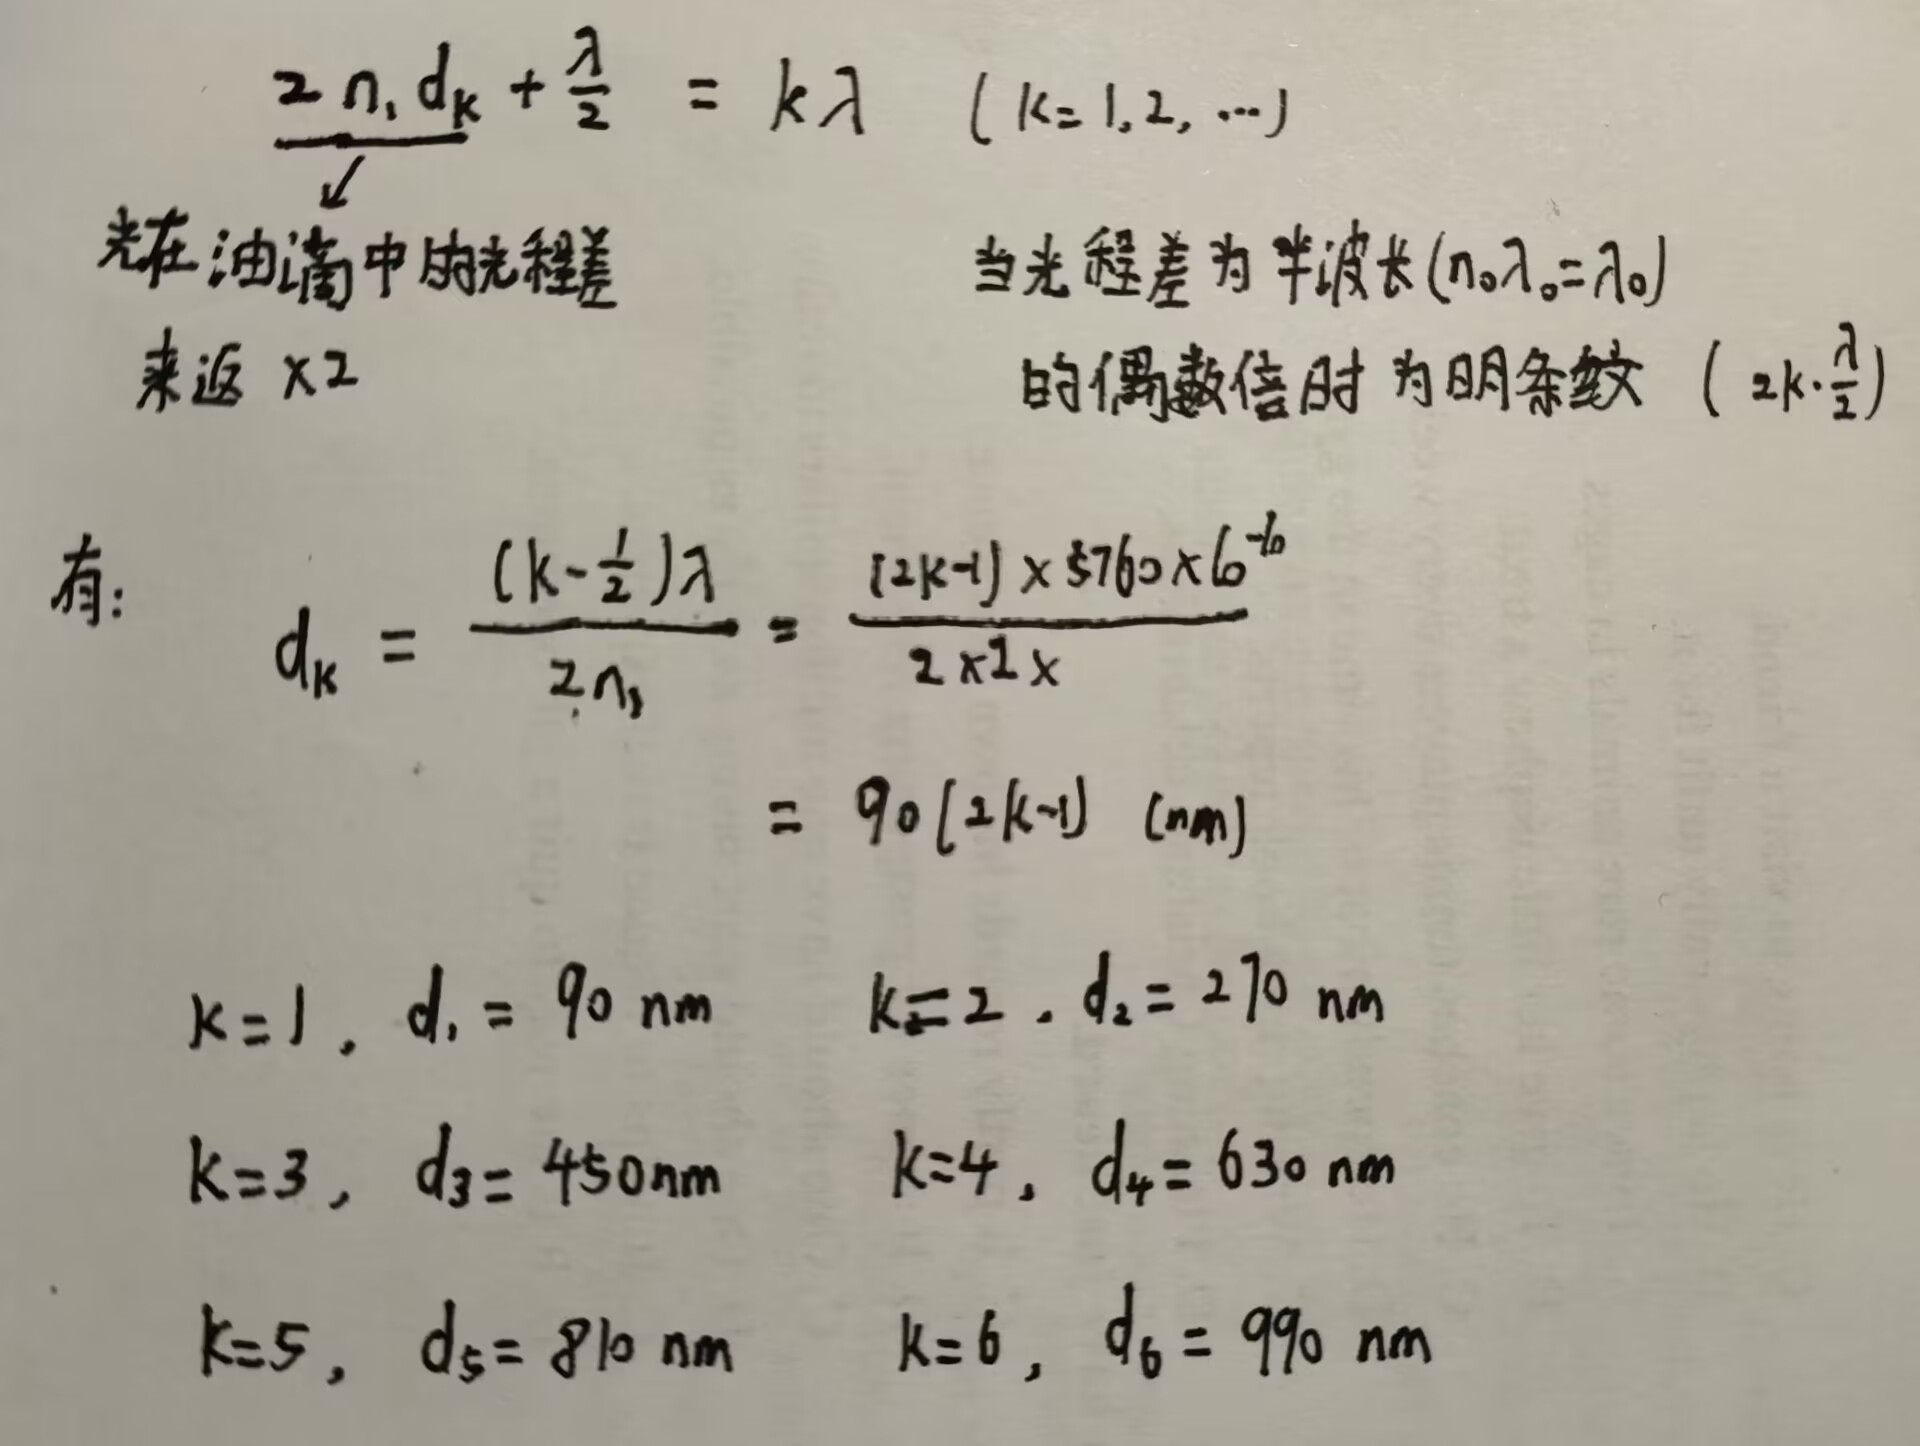 2 n₁ dₖ + λ/2 = kλ (k=1,2,…)
光在油滴中的光程差
来返 ×2
当光程差为半波长(n₀λ₀=λ₀)
的偶数倍时为明条纹 (2k·λ/2)
有:
dₖ = (k-1/2)λ / 2n₁ = (2k-1)×5760×10⁻¹⁰ / 2×2×
= 90(2k-1) (nm)
k=1, d₁ = 90 nm k=2, d₂ = 270 nm
k=3, d₃ = 450nm k=4, d₄ = 630 nm
k=5, d₅ = 810 nm k=6, d₆ = 990 nm